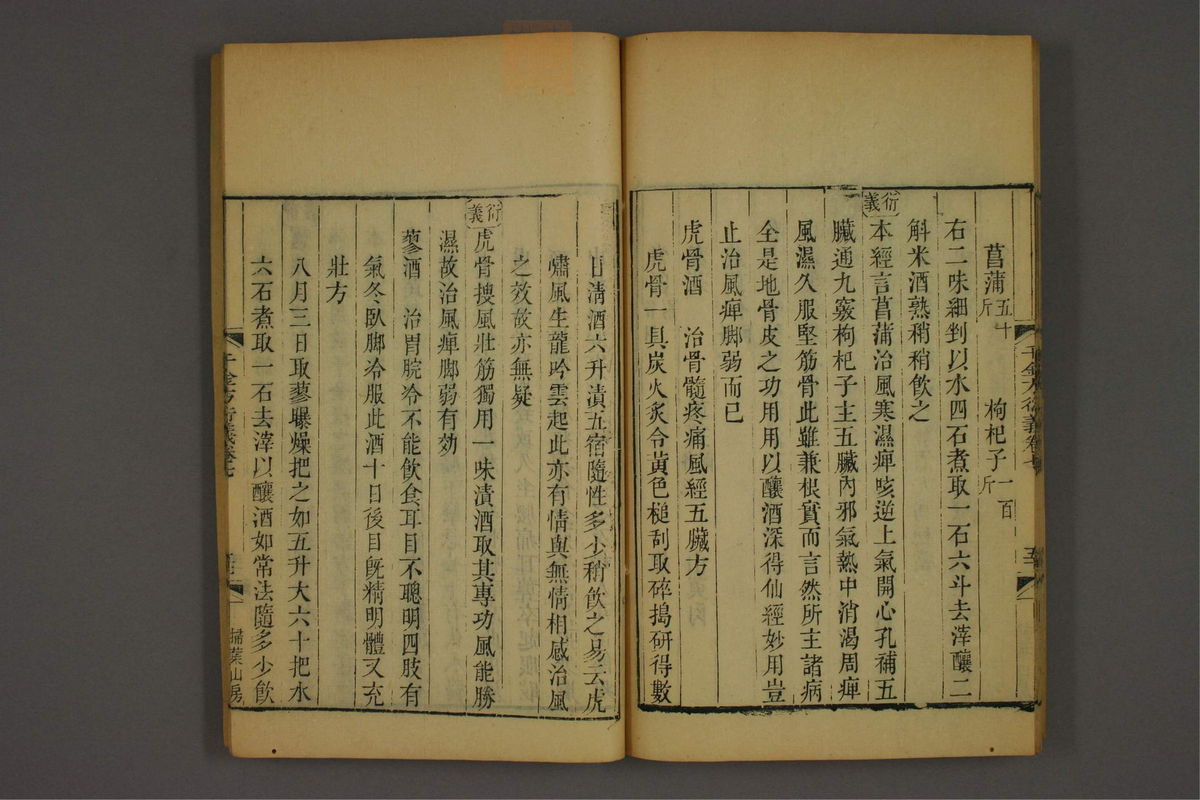 菖蒲五十斤　枸杞子一百斤
右二味細剉以水四石煮取一石六斗去滓釀二
斛米酒熟稍稍飲之
衍義
本經言菖蒲治風寒濕痺咳逆上氣開心孔補五
臟通九竅枸杞子主五臟內邪氣熱中消渴周痺
風濕久服堅筋骨此雖兼根實而言然所主諸病
全是地骨皮之功用用以釀酒深得仙經妙用豈
止治風痺脚弱而已
虎骨酒　治骨髓疼痛風經五臟方
虎骨一具炭火炙令黃色槌刮取碎搗研得數
升清酒六升漬五宿隨性多少稍飲之易云虎
嘯風生龍吟雲起此亦有情與無情相感治風
之效故亦無疑
衍義
虎骨搜風壯筋獨用一味漬酒取其專功風能勝
濕故治風痺脚弱有効
蓼酒　治胃脘冷不能飲食耳目不聰明四肢有
氣冬臥脚冷服此酒十日後目旣精明體又充
壯方
八月三日取蓼曝燥把之如五升大六十把水
六石煮取一石去滓以釀酒如常法隨多少飲
千金方衍義卷七
掃葉山房